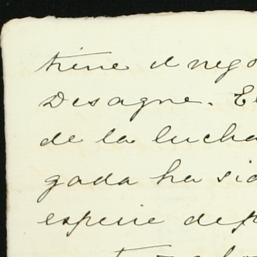 tiene el nego
Desagüe. E
de la lucha
gada ha sid
especie de p